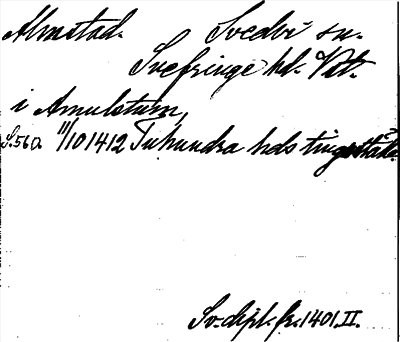 Almstad. Svedvi sn.
Snefringe hd. Vstm.
i Amulstum,
S.560. 11/10 1412 Tuhundra hds tingställe
Sv. dipl. fr. 1401. II.